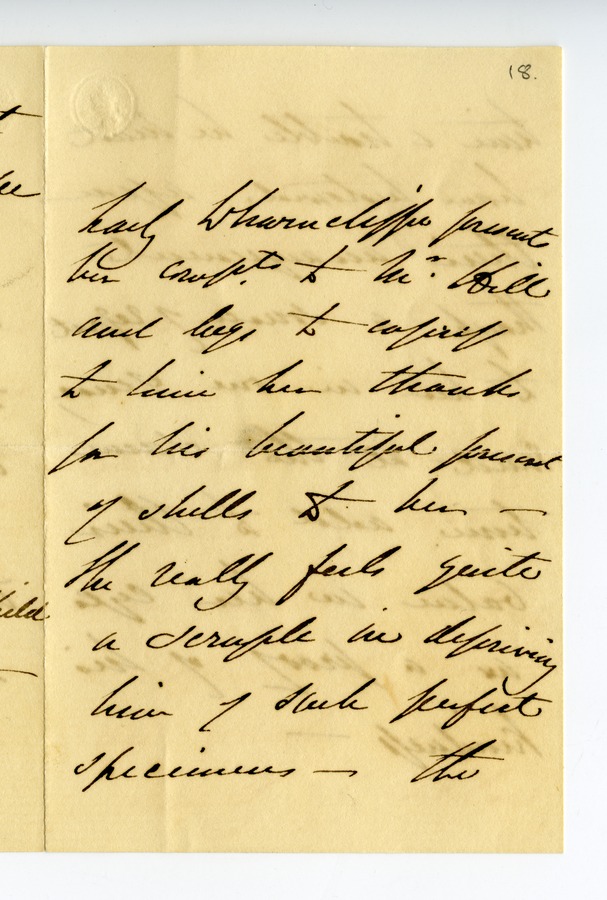 18.
Lady Wharncliffe presents
her compts. to Mr. Hill
and begs to express
to him her thanks
for his beautiful present
of shells to her —
She really feels quite
a scruple in depriving
him of such perfect
specimens — the